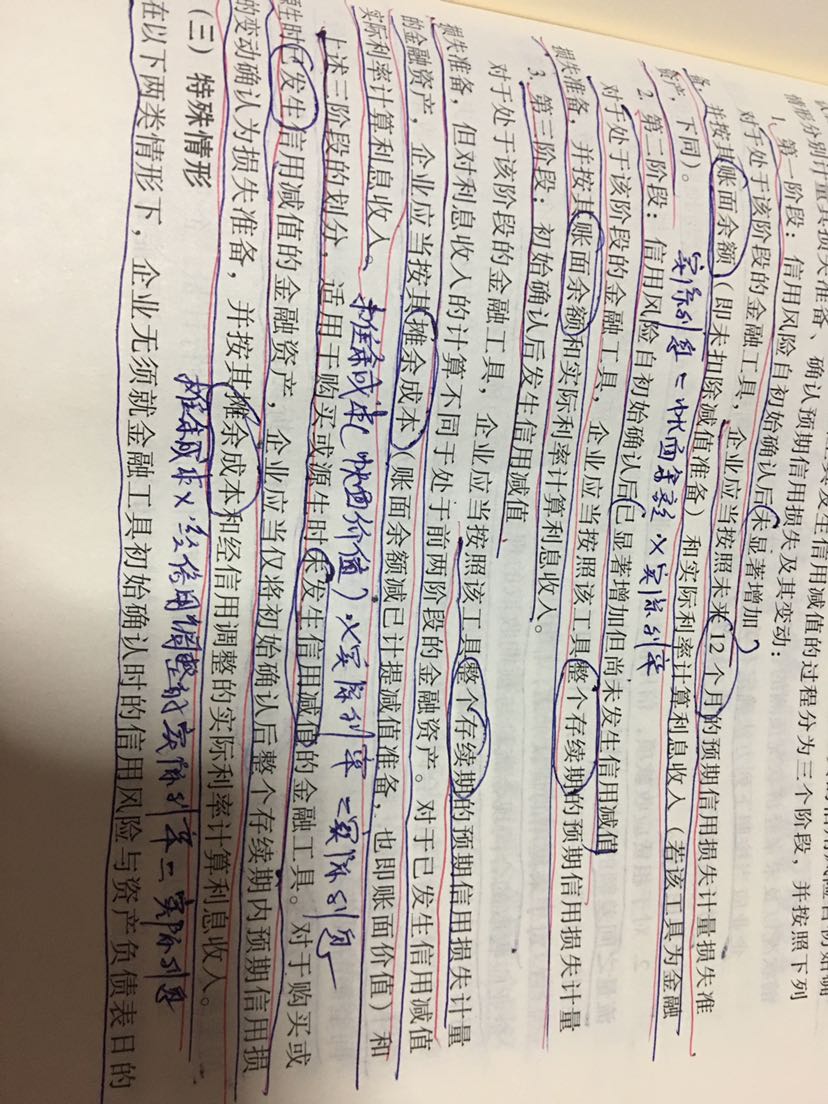 情形分别计量其损失准备、确认预期信用损失及其变动：
1. 第一阶段：信用风险自初始确认后未显著增加
对于处于该阶段的金融工具，企业应当按照未来12个月的预期信用损失计量损失准
备，并按其账面余额（即未扣除减值准备）和实际利率计算利息收入（若该工具为金融
资产，下同）。
实际利息=账面余额×实际利率
2. 第二阶段：信用风险自初始确认后已显著增加但尚未发生信用减值
对于处于该阶段的金融工具，企业应当按照该工具整个存续期的预期信用损失计量
损失准备，并按其账面余额和实际利率计算利息收入。
3. 第三阶段：初始确认后发生信用减值
对于处于该阶段的金融工具，企业应当按照该工具整个存续期的预期信用损失计量
损失准备，但对利息收入的计算不同于处于前两阶段的金融资产。对于已发生信用减值
的金融资产，企业应当按其摊余成本（账面余额减已计提减值准备，也即账面价值）和
实际利率计算利息收入。
摊余成本（账面价值）×实际利率=实际利息
上述三阶段的划分，适用于购买或源生时未发生信用减值的金融工具。对于购买或
源生时已发生信用减值的金融资产，企业应当仅将初始确认后整个存续期内预期信用损
的变动确认为损失准备，并按其摊余成本和经信用调整的实际利率计算利息收入。
摊余成本×经信用调整的实际利率=实际利息
（三）特殊情形
在以下两类情形下，企业无须就金融工具初始确认时的信用风险与资产负债表日的